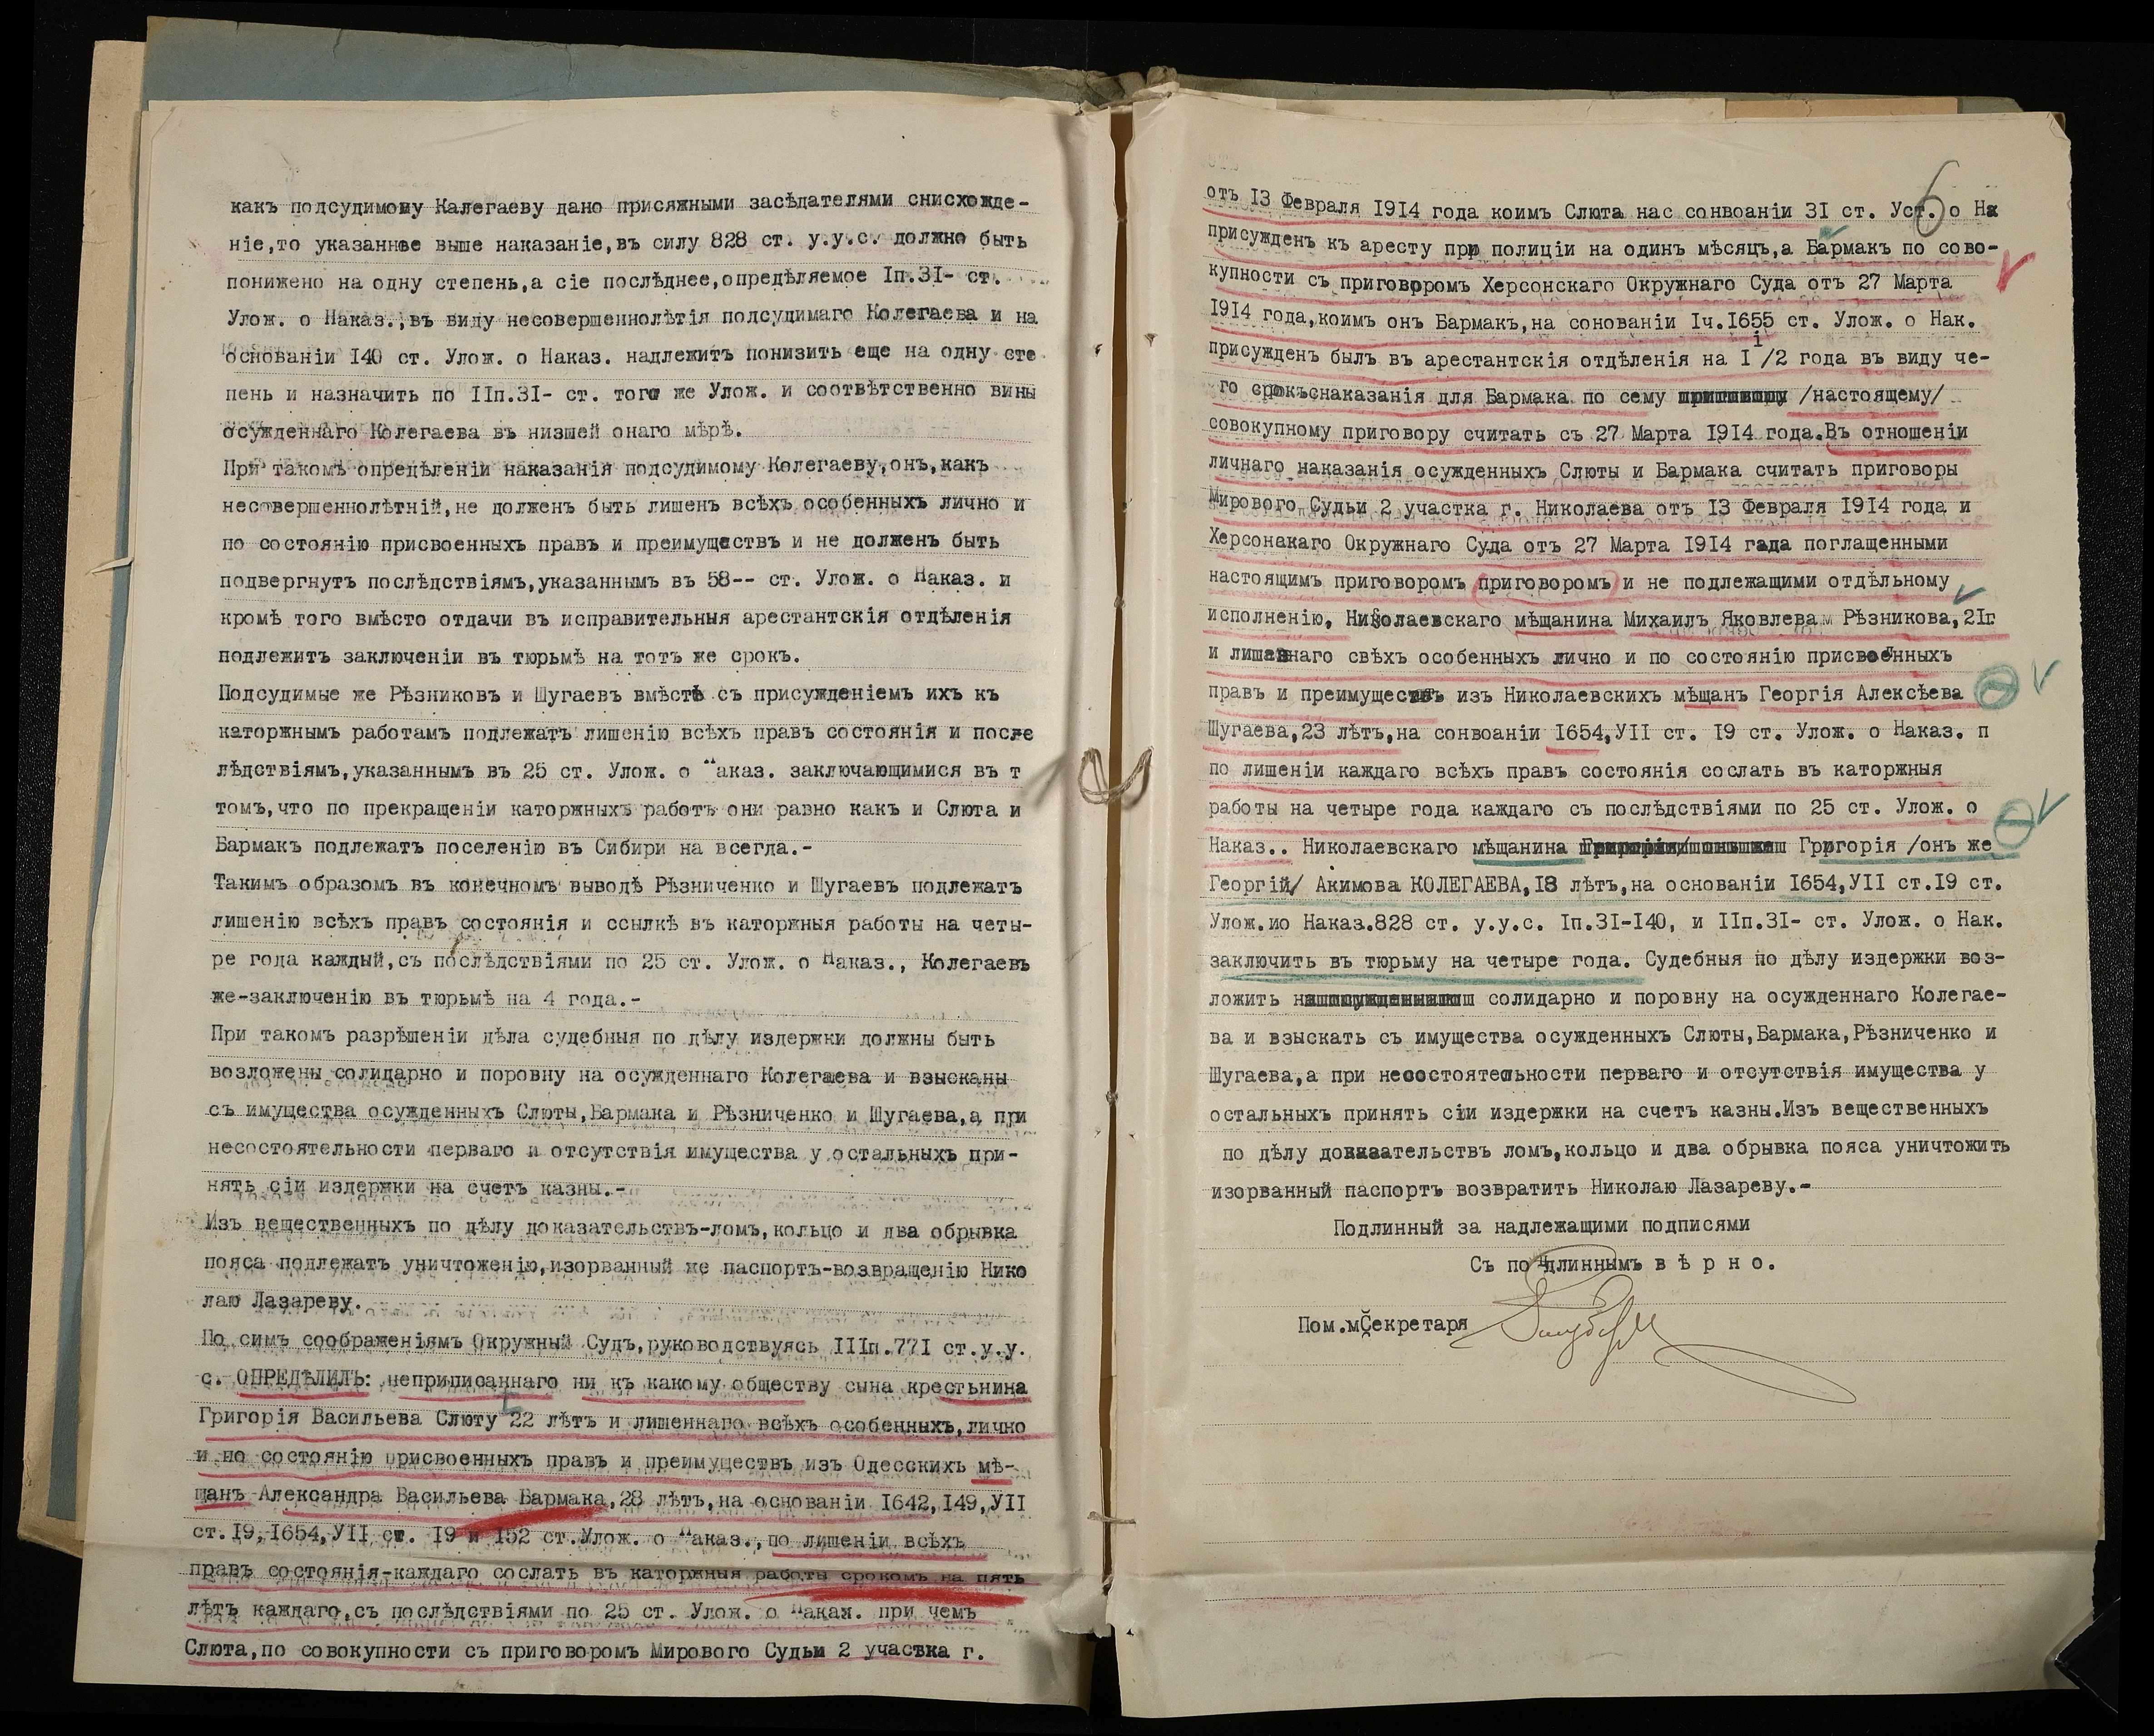 какъ подсудимому Калегаеву дано присяжными засѣдателями снисхожде-
ніе,то указанное выше наказаніе,въ силу 828 ст. у.у.с. должно быть
понижено на одну степень,а сіе послѣднее,опредѣляемое Iп.3I- ст.
Улож. о Наказ.,въ виду несовершеннолѣтія подсудимаго Колегаева и на
основаніи I40 ст. Улож. о Наказ. надлежитъ понизить еще на одну сте
пень и назначить по IIп.3I- ст. того же Улож. и соотвѣтственно вины
осужденнаго Колегаева въ низшей онаго мѣрѣ.
При такомъ опредѣленіи наказанія подсудимому Колегаеву,онъ,какъ
несовершеннолѣтній,не долженъ быть лишенъ всѣхъ особенныхъ лично и
по состоянію присвоенныхъ правъ и преимуществъ и не долженъ быть
подвергнутъ послѣдствіямъ,указаннымъ въ 58-- ст. Улож. о Наказ. и
кромѣ того вмѣсто отдачи въ исправительныя арестантскія отдѣленія
подлежитъ заключеніи въ тюрьмѣ на тотъ же срокъ.
Подсудимые же Рѣзниковъ и Шугаевъ вмѣстѣ съ присужденіемъ ихъ къ
каторжнымъ работамъ подлежатъ лишенію всѣхъ правъ состоянія и после
лѣдствіямъ,указаннымъ въ 25 ст. Улож. о Наказ. заключающимися въ т
томъ,что по прекращеніи каторжныхъ работъ они равно какъ и Слюта и
Бармакъ подлежатъ поселенію въ Сибири на всегда.-
Такимъ образомъ въ конечномъ выводѣ Рѣзниченко и Шугаевъ подлежатъ
лишенію всѣхъ правъ состоянія и ссылкѣ въ каторжныя работы на четы-
ре года каждый,съ послѣдствіями по 25 ст. Улож. о Наказ., Колегаевъ
же-заключенію въ тюрьмѣ на 4 года.-
При такомъ разрѣшеніи дѣла судебныя по дѣлу издержки должны быть
возложены солидарно и поровну на осужденнаго Колегаева и взысканы
съ имущества осужденныхъ Слюты,Бармака и Рѣзниченко и Шугаева,а при
несостоятельности перваго и отсутствія имущества у остальныхъ при-
нять сіи издержки на счетъ казны.-
Изъ вещественныхъ по дѣлу доказательствъ-ломъ,кольцо и два обрывка
пояса подлежатъ уничтоженію,изорванный же паспортъ-возвращенію Нико
лаю Лазареву.
По симъ соображеніямъ Окружный Судъ,руководствуясь IIIп.77I ст.у.у.
с. ОПРЕДѢЛИЛЪ: неприписаннаго ни къ какому обществу сына крестьнина
Григорія Васильева Слюту 22 лѣтъ и лишеннаго всѣхъ особенныхъ,лично
и по состоянію присвоенныхъ правъ и преимуществъ изъ Одесскихъ мѣ-
щанъ Александра Васильева Бармака,28 лѣтъ,на основаніи I642,I49,УII
ст.I9,I654,УII ст. I9 и I52 ст.Улож. о Наказ.,по лишеніи всѣхъ
правъ состоянія-каждаго сослать въ каторжныя работы срокомъ на пять
лѣтъ каждаго,съ послѣдствіями по 25 ст. Улож. о Наказ. при чемъ
Слюта,по совокупности съ приговоромъ Мирового Судьи 2 участка г.
6
отъ I3 Февраля I9I4 года коимъ Слюта нас сонвоаніи 3I ст. Уст. о На
присужденъ къ аресту при полиціи на одинъ мѣсяцъ,а Бармакъ по сово-
купности съ приговоромъ Херсонскаго Окружнаго Суда отъ 27 Марта
I9I4 года,коимъ онъ Бармакъ,на соновании Iч.I655 ст. Улож. о Нак.
присужденъ былъ въ арестантскія отдѣленія на I i/2 года въ виду че-
го срокъснаказанія для Бармака по сему /настоящему/
совокупному приговору считать съ 27 Марта I9I4 года.Въ отношеніи
личнаго наказанія осужденныхъ Слюты и Бармака считать приговоры
Мирового Судьи 2 участка г. Николаева отъ I3 Февраля I9I4 года и
Херсонакаго Окружнаго Суда отъ 27 Марта I9I4 гада поглащенными
настоящимъ приговоромъ приговоромъ и не подлежащими отдѣльному
исполненію, Николаевскаго мѣщанина Михаилъ Яковлевам Рѣзникова,2Iг
и лишаннаго свѣхъ особенныхъ лично и по состоянію присвоенныхъ
правъ и преимуществъ изъ Николаевскихъ мѣщанъ Георгія Алексѣева
Шугаева,23 лѣтъ,на сонвоаніи I654,УII ст. I9 ст. Улож. о Наказ. п
по лишеніи каждаго всѣхъ правъ состоянія сослать въ каторжныя
работы на четыре года каждаго съ послѣдствіями по 25 ст. Улож. о
Наказ.. Николаевскаго мѣщанина Григорія /онъ же
Георгій/ Акимова КОЛЕГАЕВА,I8 лѣтъ,на основаніи I654,УII ст.I9 ст.
Улож.ио Наказ.828 ст. у.у.с. Iп.3I-I40, и IIп.3I- ст. Улож. о Нак.
заключить въ тюрьму на четыре года. Судебныя по дѣлу издержки воз-
ложить солидарно и поровну на осужденнаго Колегае-
ва и взыскать съ имущества осужденныхъ Слюты,Бармака,Рѣзниченко и
Шугаева,а при несостоятельности перваго и отсутствія имущества у
остальныхъ принять сіи издержки на счетъ казны.Изъ вещественныхъ
по дѣлу доказательствъ ломъ,кольцо и два обрывка пояса уничтожить
изорванный паспортъ возвратить Николаю Лазареву.-
Подлинный за надлежащими подписями
Съ подлиннымъ вѣрно.
Пом.мСекретаря